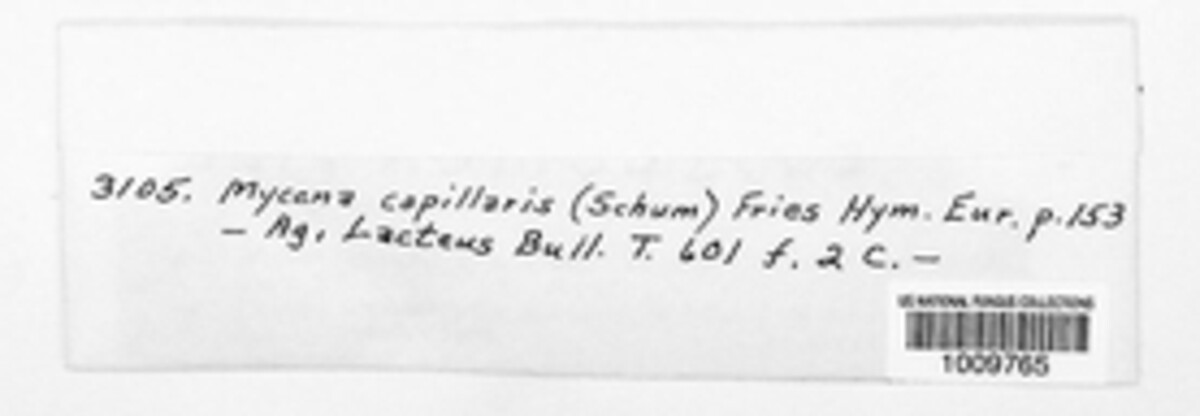 3105. Mycena capillaris (Schum) Fries Hym. Eur. p. 153
— Ag. Lacteus Bull. T. 601 f. 2 C. —
US NATIONAL FUNGUS COLLECTIONS
1009765